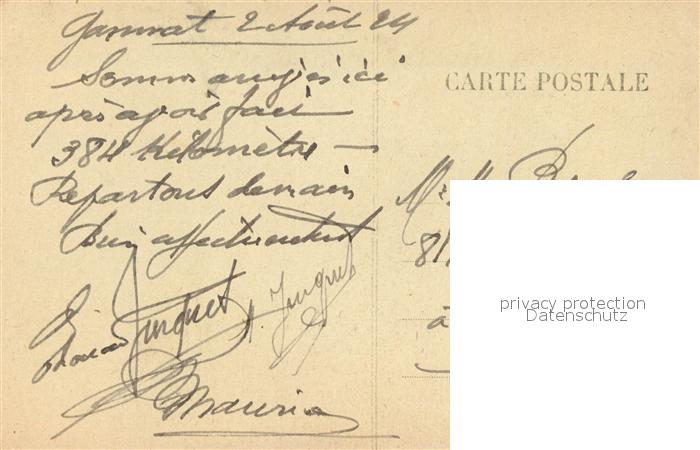 Gannat 2 Août 24
Sommes arrivés ici
après avoir fait
384 Kilomètres —
Repartons demain
Bien affectueusement
Junquet
Junquet
Mauria
CARTE POSTALE
M
81
à
privacy protection
Datenschutz